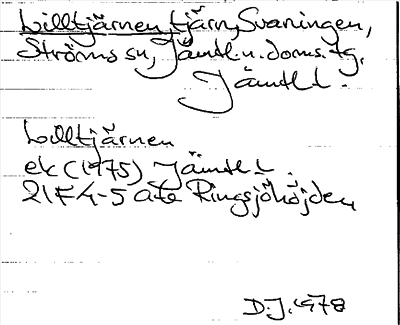 Lilltjärnen, tjärn, Svaningen,
Ströms sn, Jämtl. n. doms. tg,
Jämtl l.
Lilltjärnen
ek (1975) Jämtl l.
21F 4-5 a+e Ringsjöhöjden
D.J. 1978